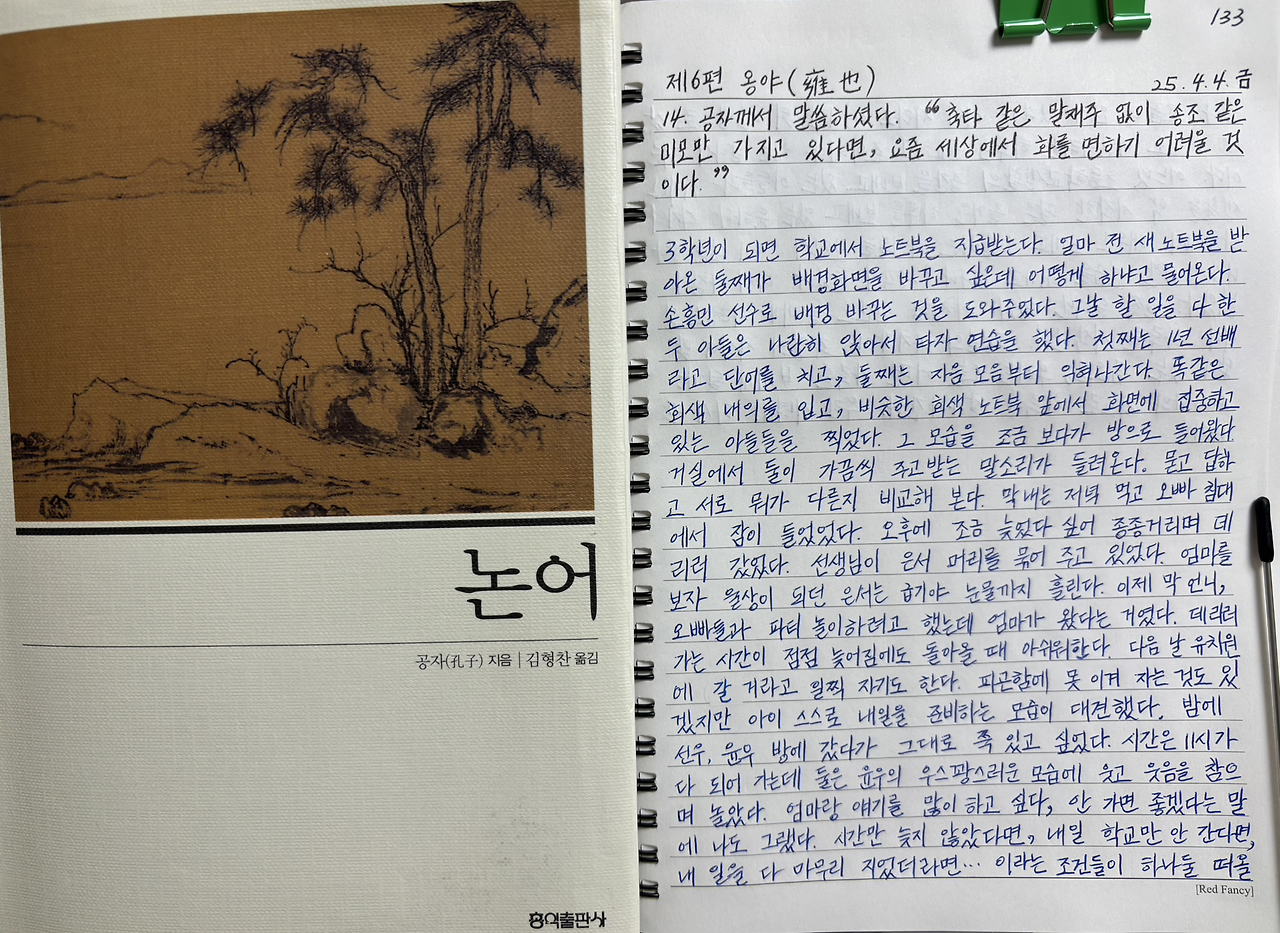 논어
공자(孔子) 지음 | 김형찬 옮김
홍익출판사
133
제6편 옹야(雍也)
25.4.4.금
14. 공자께서 말씀하셨다. "축타 같은 말재주 없이 송조 같은
미모만 가지고 있다면, 요즘 세상에서 화를 면하기 어려울 것
이다."
3학년이 되면 학교에서 노트북을 지급받는다. 얼마 전 새 노트북을 받
아온 둘째가 배경화면을 바꾸고 싶은데 어떻게 하냐고 물어온다.
손흥민 선수로 배경 바꾸는 것을 도와주었다. 그날 할 일을 다 한
두 아들은 나란히 앉아서 타자 연습을 했다. 첫째는 1년 선배
라고 단어를 치고, 둘째는 자음 모음부터 익혀나간다. 똑같은
회색 내의를 입고, 비슷한 회색 노트북 앞에서 화면에 집중하고
있는 아들들을 찍었다. 그 모습을 조금 보다가 방으로 들어왔다.
거실에서 둘이 가끔씩 주고받는 말소리가 들려온다. 묻고 답하
고 서로 뭐가 다른지 비교해 본다. 막내는 저녁 먹고 오빠 침대
에서 잠이 들었었다. 오후에 조금 늦었다 싶어 종종거리며 데
리러 갔었다. 선생님이 은서 머리를 묶어 주고 있었다. 엄마를
보자 울상이 되던 은서는 급기야 눈물까지 흘린다. 이제 막 언니,
오빠들과 파티 놀이하려고 했는데 엄마가 왔다는 거였다. 데리러
가는 시간이 점점 늦어짐에도 돌아올 때 아쉬워한다. 다음 날 유치원
에 갈 거라고 일찍 자기도 한다. 피곤함에 못 이겨 자는 것도 있
겠지만 아이 스스로 내일을 준비하는 모습이 대견했다. 밤에
선우, 윤우 방에 갔다가 그대로 쭉 있고 싶었다. 시간은 11시가
다 되어 가는데 둘은 윤우의 우스꽝스러운 모습에 웃고 웃음을 참으
며 놀았다. 엄마랑 얘기를 많이 하고 싶다, 안 가면 좋겠다는 말
에 나도 그랬다. 시간만 늦지 않았다면, 내일 학교만 안 간다면,
내 일을 다 마무리 지었더라면… 이라는 조건들이 하나둘 떠올
[Red Fancy]